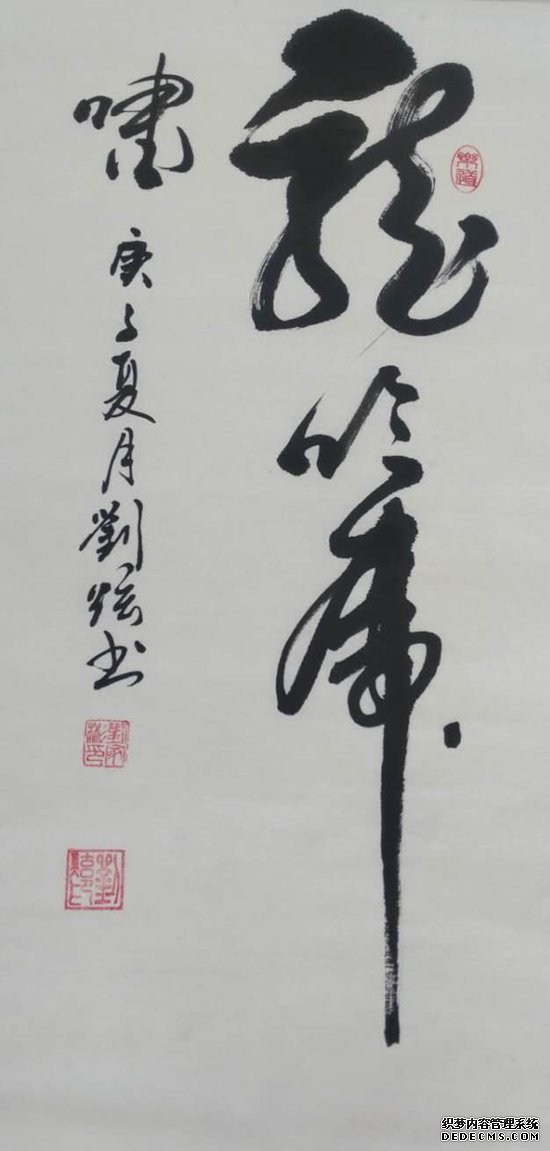 龍吟虎
嘯 庚子夏月劉炫书
织梦内容管理系统
DEDECMS.COM